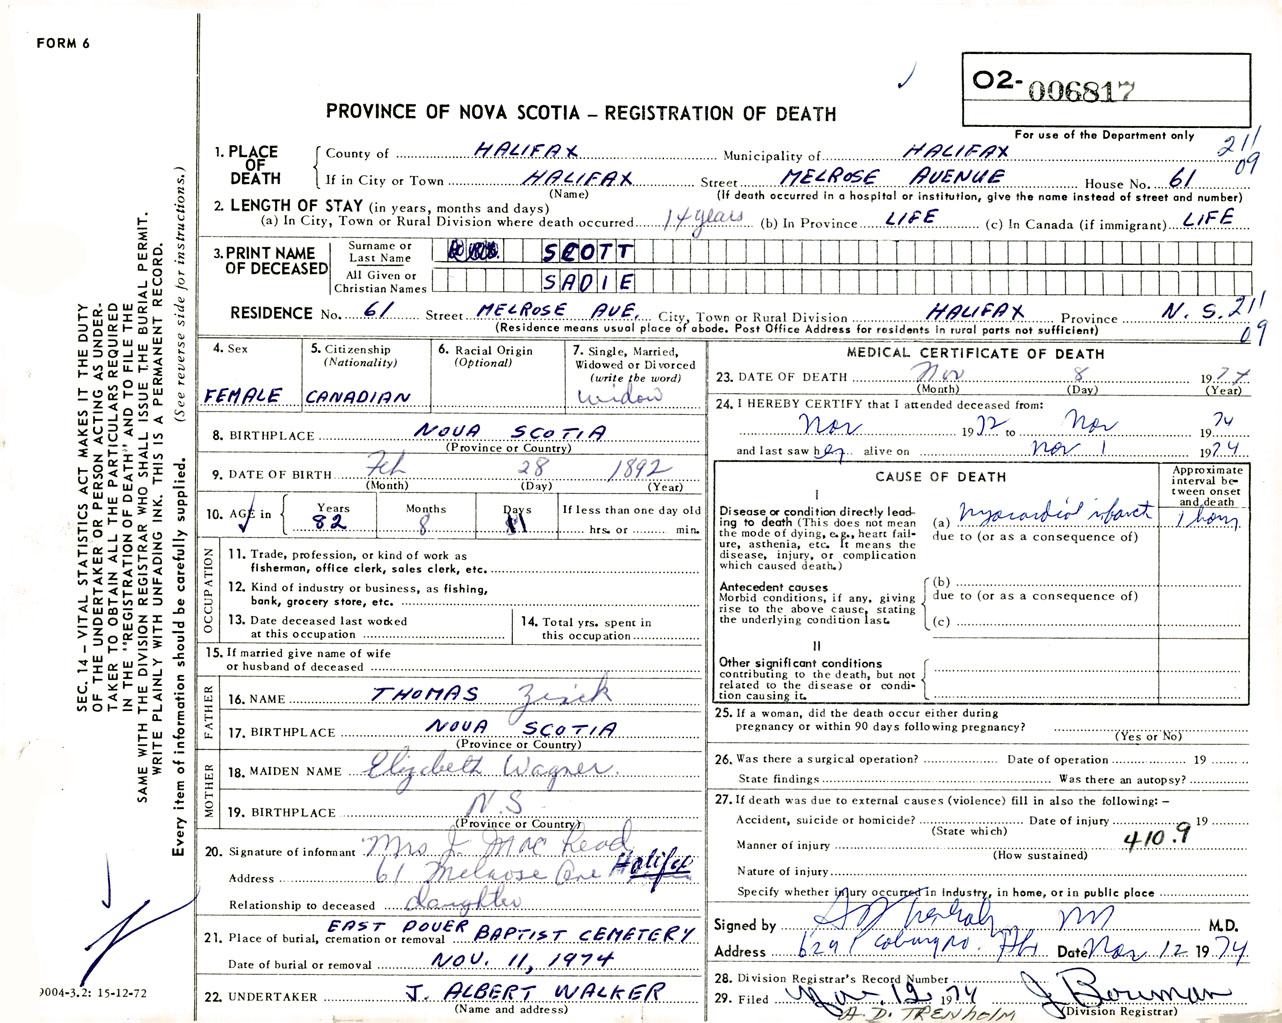 FORM 6
O2-006817
For use of the Department only
PROVINCE OF NOVA SCOTIA – REGISTRATION OF DEATH
211
09
1. PLACE OF DEATH
County of HALIFAX Municipality of HALIFAX
If in City or Town HALIFAX Street MELROSE AVENUE House No. 61
(Name) (If death occurred in a hospital or institution, give the name instead of street and number)
2. LENGTH OF STAY (in years, months and days)
(a) In City, Town or Rural Division where death occurred 14 years (b) In Province LIFE (c) In Canada (if immigrant) LIFE
3. PRINT NAME OF DECEASED
Surname or Last Name SCOTT
All Given or Christian Names SADIE
RESIDENCE No. 61 Street MELROSE AVE. City, Town or Rural Division HALIFAX Province N.S. 211
(Residence means usual place of abode. Post Office Address for residents in rural parts not sufficient) 09
4. Sex
FEMALE
5. Citizenship (Nationality)
CANADIAN
6. Racial Origin (Optional)
7. Single, Married, Widowed or Divorced (write the word)
widow
8. BIRTHPLACE NOVA SCOTIA
(Province or Country)
9. DATE OF BIRTH Feb 28 1892
(Month) (Day) (Year)
10. AGE in Years Months Days If less than one day old
82 8 11 hrs. or min.
OCCUPATION
11. Trade, profession, or kind of work as fisherman, office clerk, sales clerk, etc.
12. Kind of industry or business, as fishing, bank, grocery store, etc.
13. Date deceased last worked at this occupation
14. Total yrs. spent in this occupation
15. If married give name of wife or husband of deceased
FATHER
16. NAME THOMAS Zinck
17. BIRTHPLACE NOVA SCOTIA
(Province or Country)
MOTHER
18. MAIDEN NAME Elizabeth Wagner.
19. BIRTHPLACE N.S
(Province or Country)
20. Signature of informant Mrs J. Mac Leod
Address 61 Melrose Ave Halifax
Relationship to deceased daughter
21. Place of burial, cremation or removal EAST DOVER BAPTIST CEMETERY
Date of burial or removal NOV. 11, 1974
22. UNDERTAKER J. ALBERT WALKER
(Name and address)
MEDICAL CERTIFICATE OF DEATH
23. DATE OF DEATH Nov 8 1974
(Month) (Day) (Year)
24. I HEREBY CERTIFY that I attended deceased from:
Nov 1972 to Nov 1974
and last saw her alive on Nov 1 1974
CAUSE OF DEATH
Approximate interval between onset and death
I
Disease or condition directly leading to death (This does not mean the mode of dying, e.g., heart failure, asthenia, etc. It means the disease, injury, or complication which caused death.)
(a) Myocardial infarct 1 hour
due to (or as a consequence of)
Antecedent causes
Morbid conditions, if any, giving rise to the above cause, stating the underlying condition last.
(b)
due to (or as a consequence of)
(c)
II
Other significant conditions contributing to the death, but not related to the disease or condition causing it.
25. If a woman, did the death occur either during pregnancy or within 90 days following pregnancy?
(Yes or No)
26. Was there a surgical operation? Date of operation 19
State findings Was there an autopsy?
27. If death was due to external causes (violence) fill in also the following: –
Accident, suicide or homicide? Date of injury 19
(State which)
Manner of injury 410.9
(How sustained)
Nature of injury
Specify whether injury occurred in industry, in home, or in public place
Signed by A D Trenholm MD M.D.
Address Coburg Rd. Hfx Date Nov 12 1974
28. Division Registrar's Record Number
29. Filed Nov. 12 1974 J Bowman
A. D. TRENHOLM (Division Registrar)
SEC. 14 – VITAL STATISTICS ACT MAKES IT THE DUTY
OF THE UNDERTAKER OR PERSON ACTING AS UNDER-
TAKER TO OBTAIN ALL THE PARTICULARS REQUIRED
IN THE "REGISTRATION OF DEATH" AND TO FILE THE
SAME WITH THE DIVISION REGISTRAR WHO SHALL ISSUE THE BURIAL PERMIT.
WRITE PLAINLY WITH UNFADING INK. THIS IS A PERMANENT RECORD.
Every item of information should be carefully supplied. (See reverse side for instructions.)
9004-3.2: 15-12-72